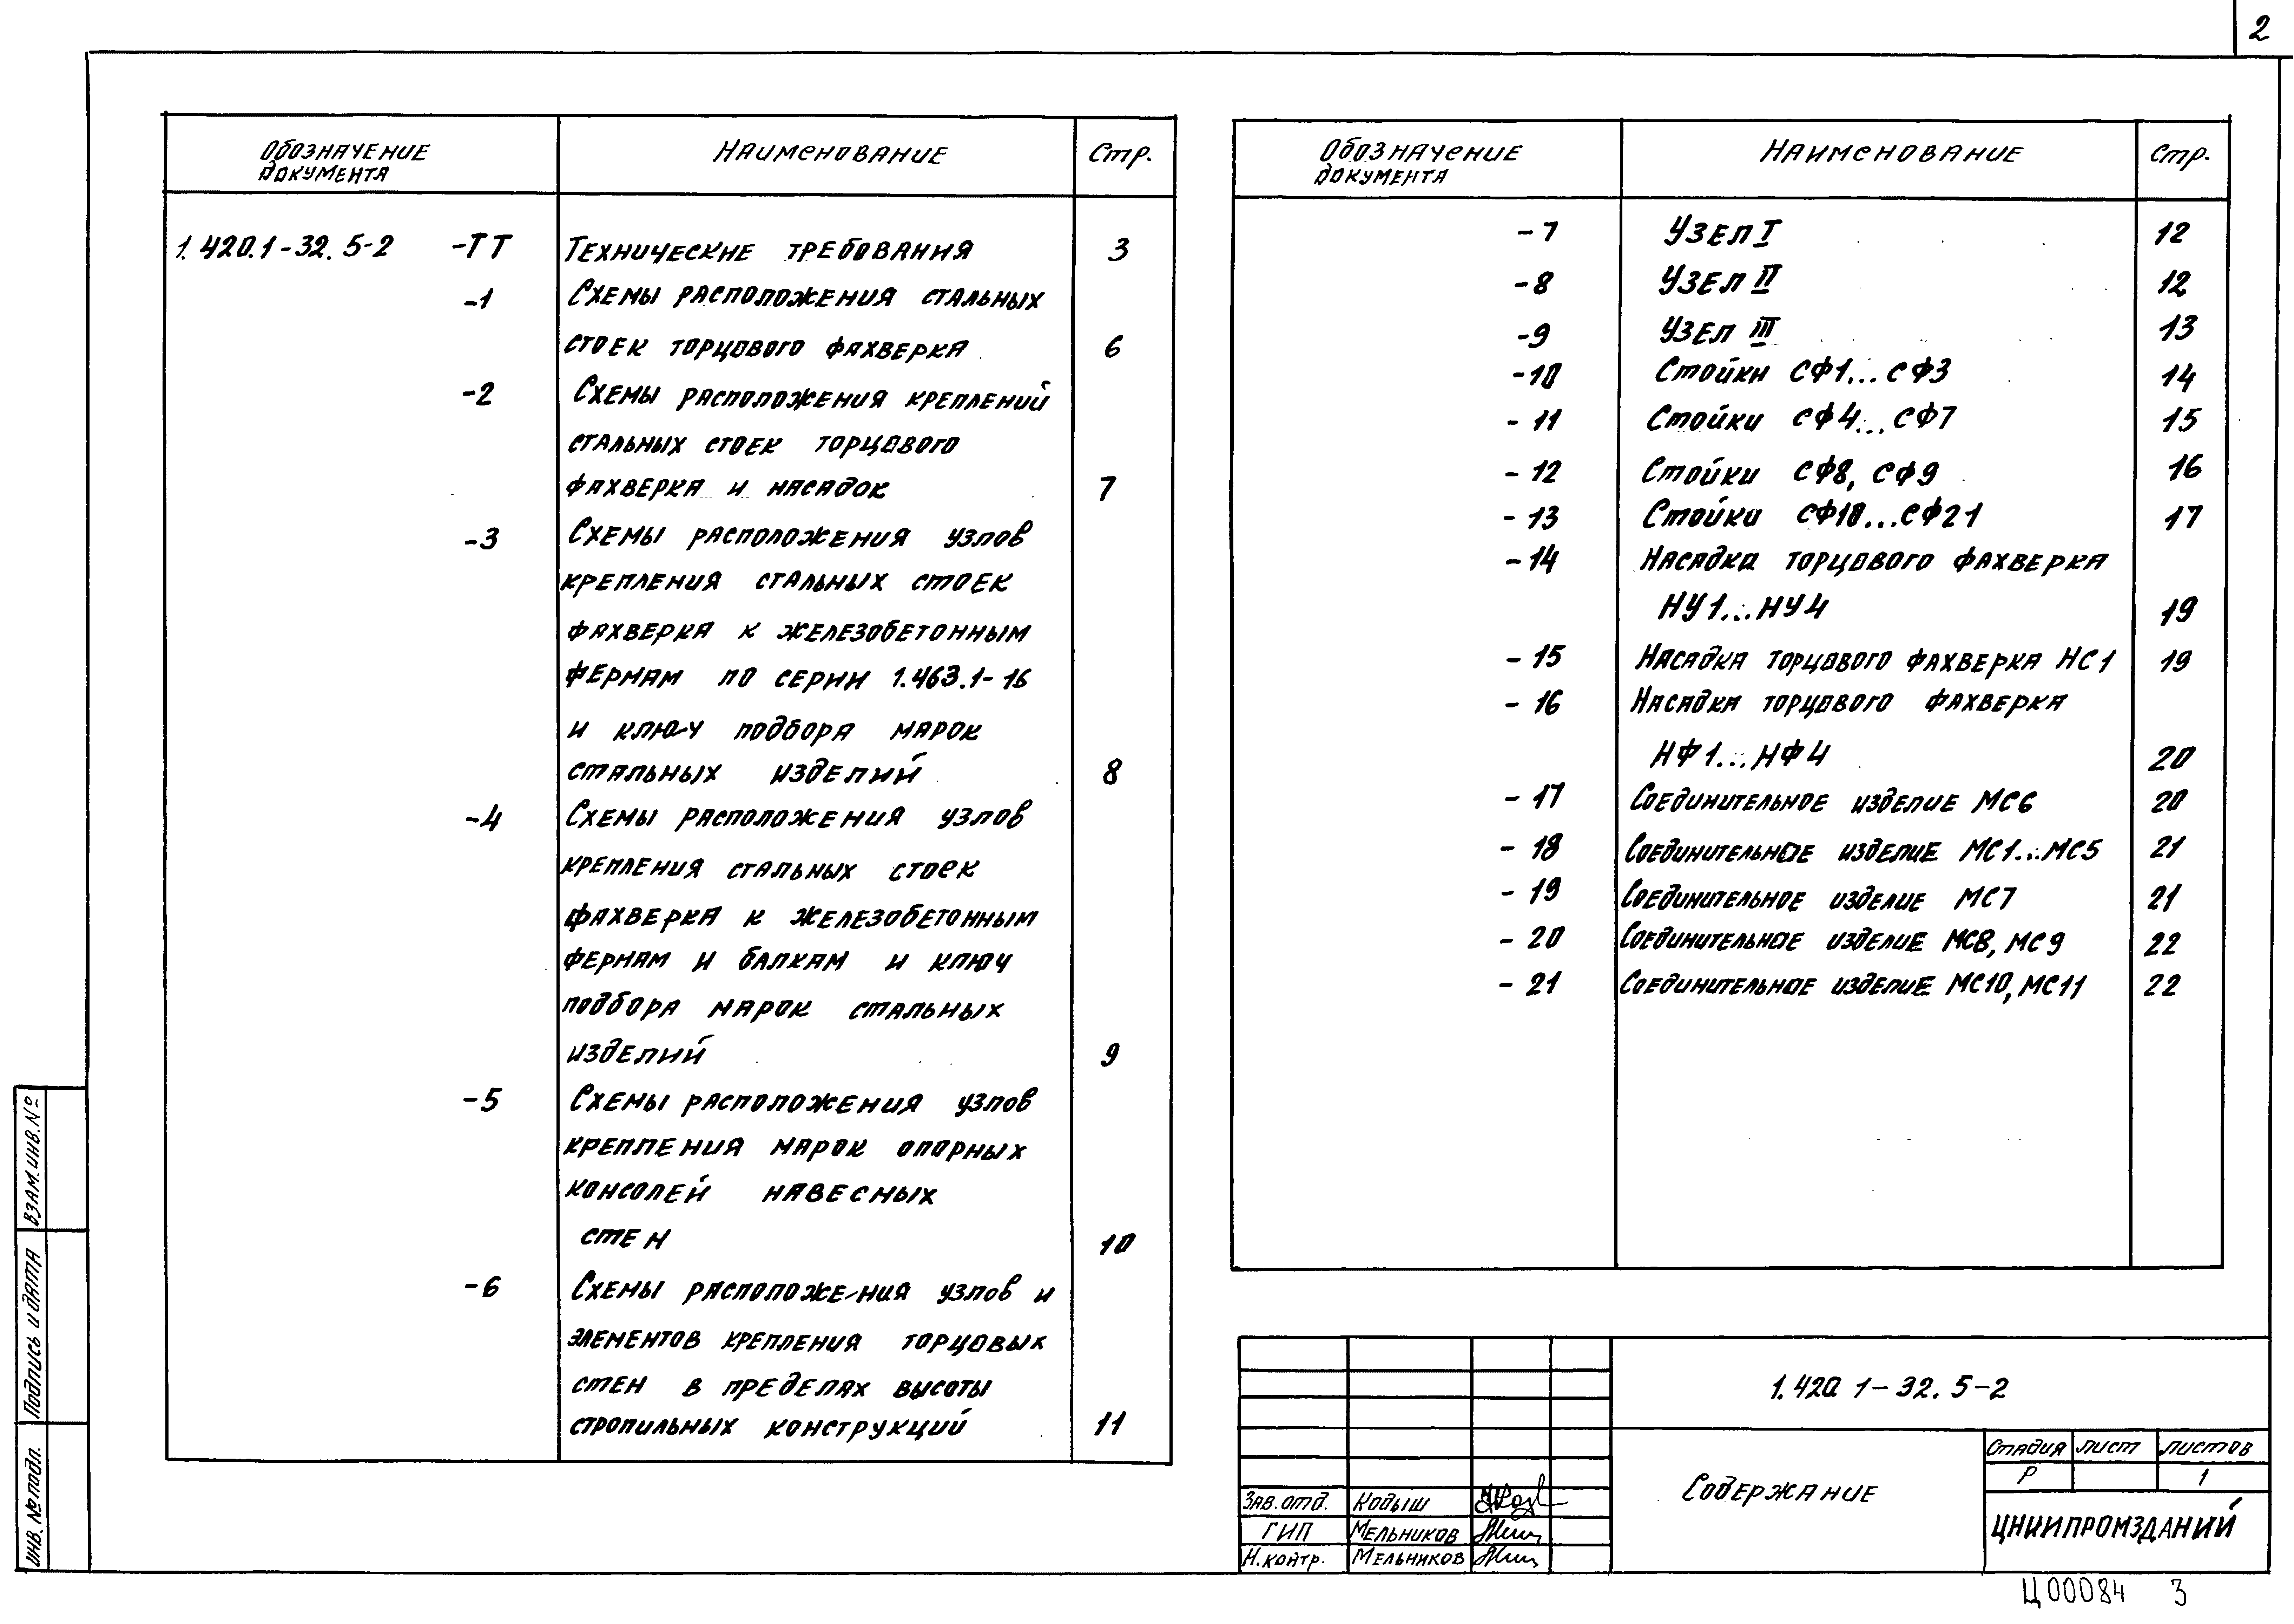 2
Обозначение документа Наименование Стр.
1.420.1-32.5-2 -ТТ Технические требования 3
-1 Схемы расположения стальных
стоек торцового фахверка 6
-2 Схемы расположения креплений
стальных стоек торцового
фахверка и насадок 7
-3 Схемы расположения узлов
крепления стальных стоек
фахверка к железобетонным
фермам по серии 1.463.1-16
и ключ подбора марок
стальных изделий 8
-4 Схемы расположения узлов
крепления стальных стоек
фахверка к железобетонным
фермам и балкам и ключ
подбора марок стальных
изделий 9
-5 Схемы расположения узлов
крепления марок опорных
консолей навесных
стен 10
-6 Схемы расположения узлов и
элементов крепления торцовых
стен в пределах высоты
стропильных конструкций 11
Обозначение документа Наименование Стр.
-7 Узел I 12
-8 Узел II 12
-9 Узел III 13
-10 Стойки СФ1...СФ3 14
-11 Стойки СФ4...СФ7 15
-12 Стойки СФ8, СФ9 16
-13 Стойки СФ10...СФ21 17
-14 Насадка торцового фахверка
НУ1...НУ4 19
-15 Насадка торцового фахверка НС1 19
-16 Насадка торцового фахверка
НФ1...НФ4 20
-17 Соединительное изделие МС6 20
-18 Соединительное изделие МС1...МС5 21
-19 Соединительное изделие МС7 21
-20 Соединительное изделие МС8, МС9 22
-21 Соединительное изделие МС10, МС11 22
Инв. № подл. Подпись и дата Взам. инв. №
1.420.1-32.5-2
Содержание
Стадия Лист Листов
Р 1
ЦНИИПРОМЗДАНИЙ
Зав. отд. Кодыш
ГИП Мельников
Н. контр. Мельников
Ц00084 3